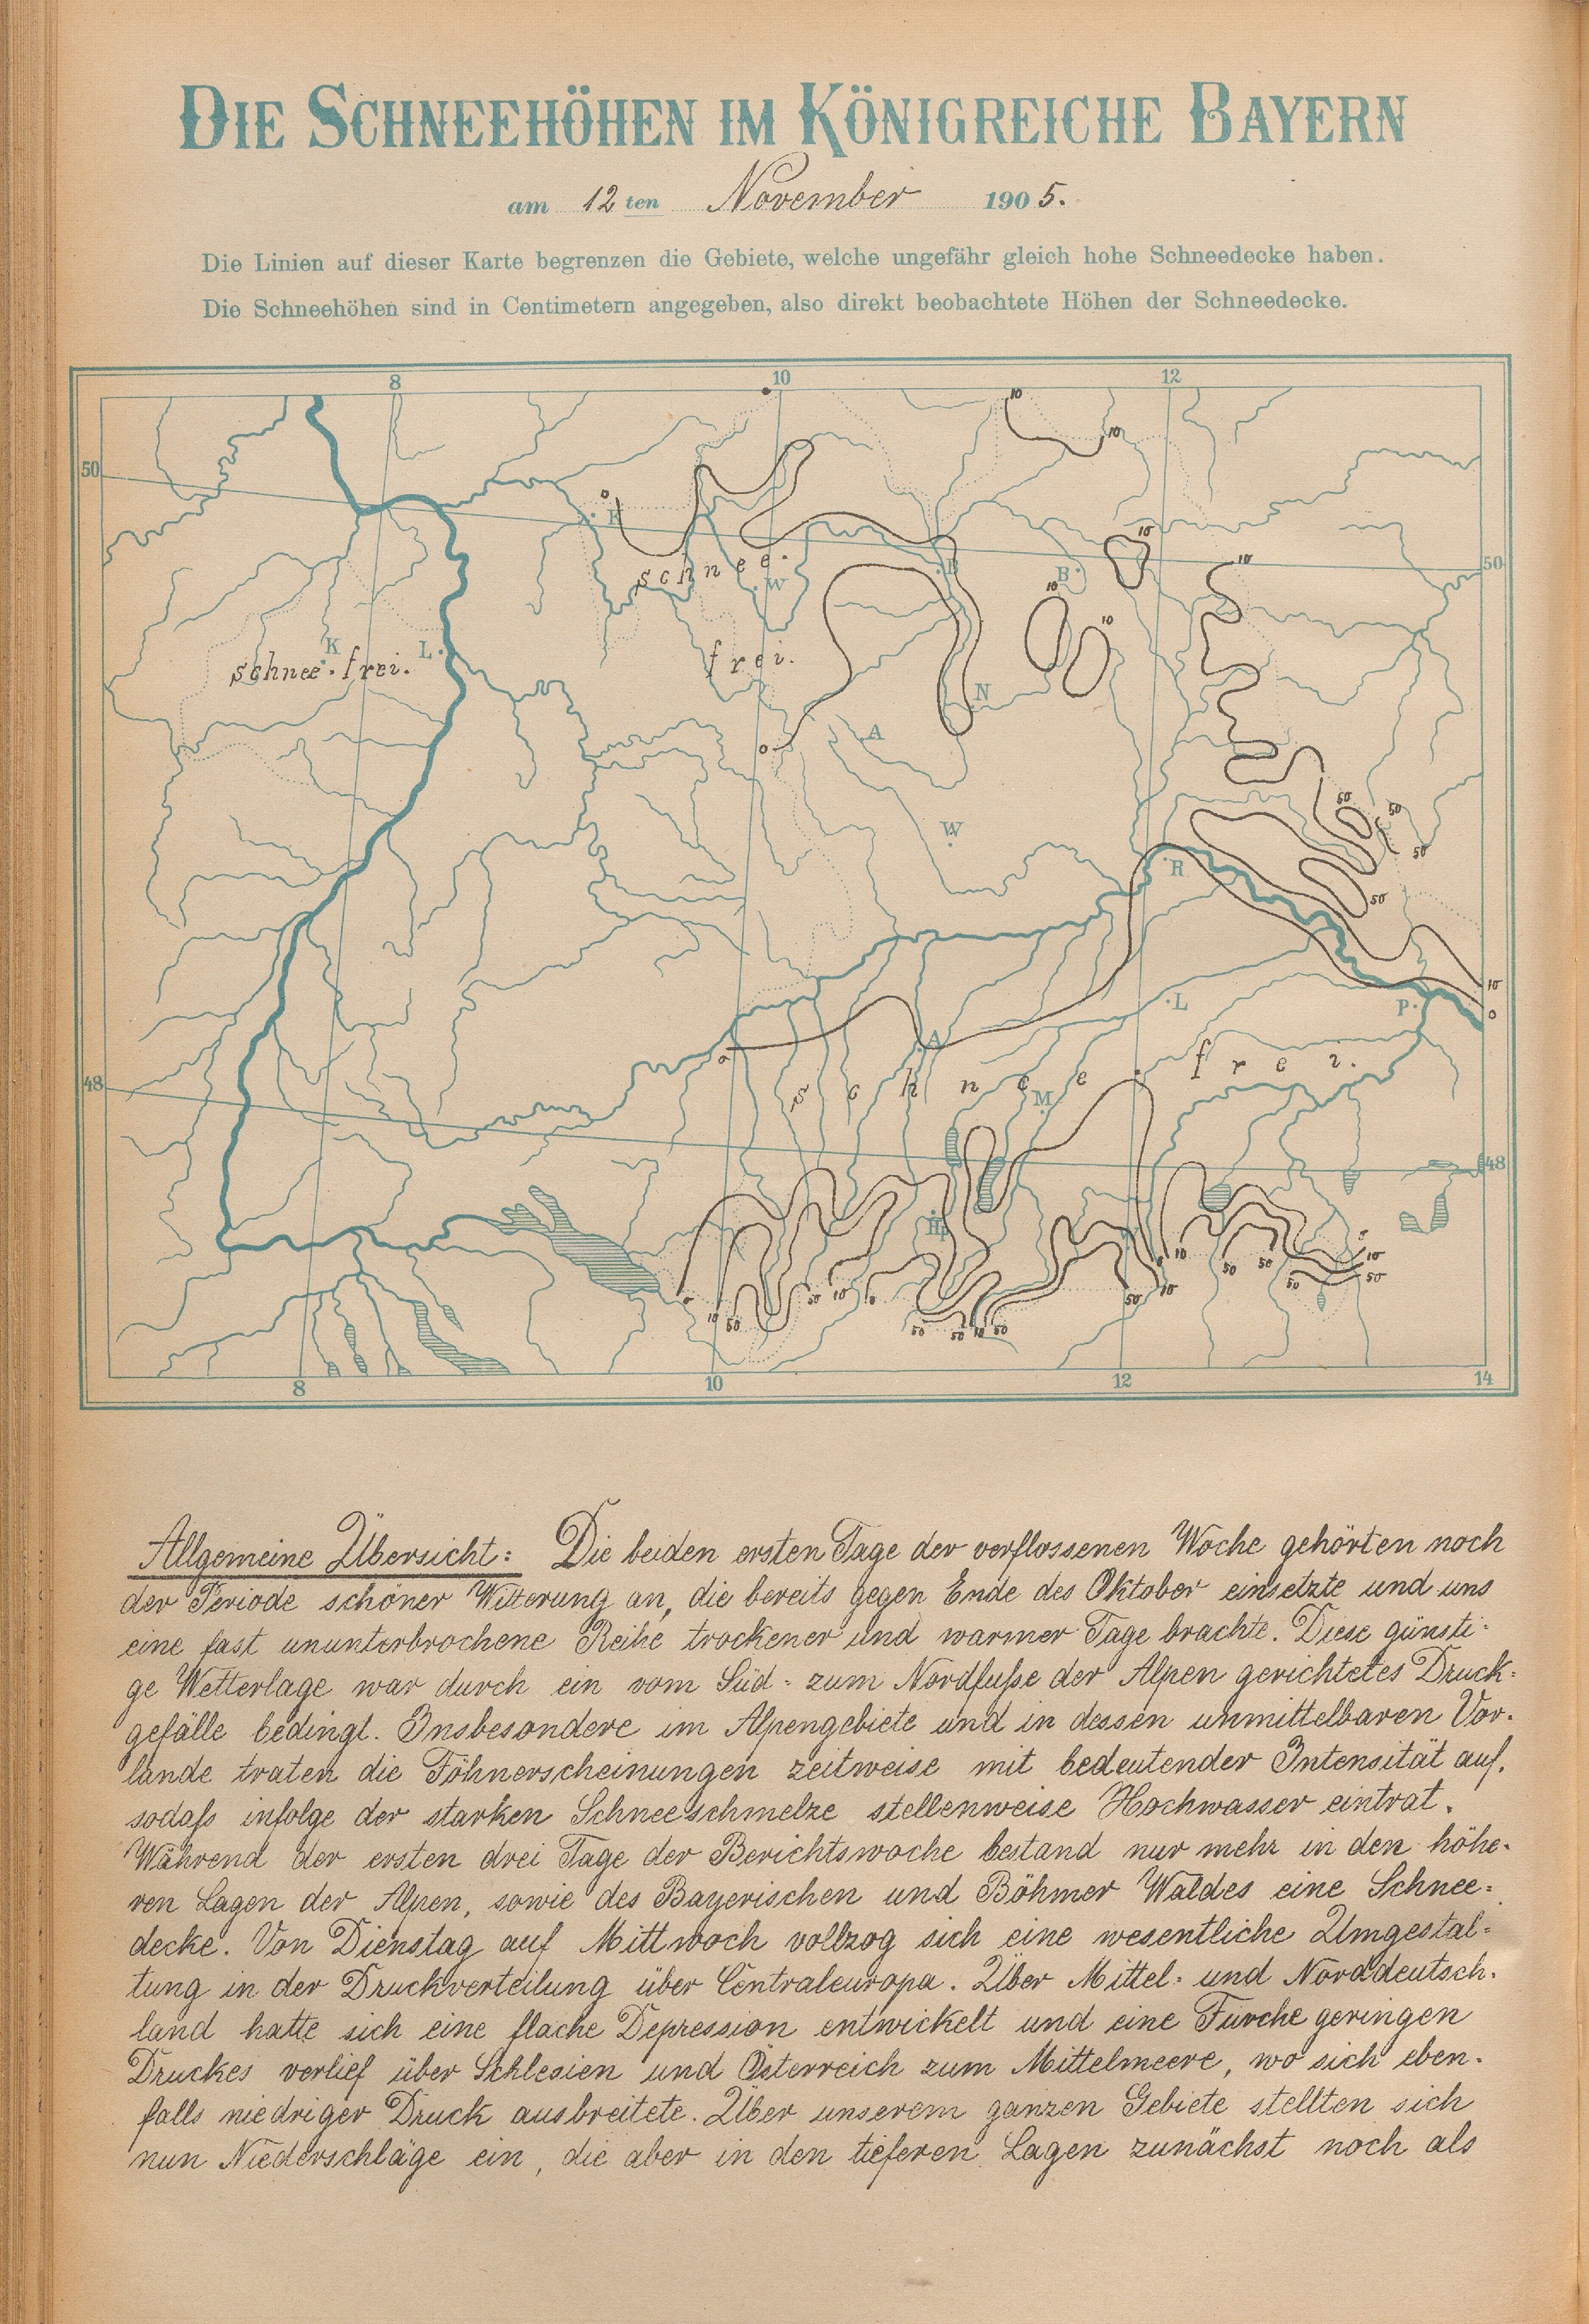 DIE SCHNEEHÖHEN IM KÖNIGREICHE BAYERN
am 12ten November 1905.
Die Linien auf dieser Karte begrenzen die Gebiete, welche ungefähr gleich hohe Schneedecke haben.
Die Schneehöhen sind in Centimetern angegeben, also direkt beobachtete Höhen der Schneedecke.
8 10 12
10 10
50
0 F
schnee. W
B B 10 10 50
10 10
K L
schnee-frei.
frei.
N
0 A
W
50 50
50
R
50
10
0
L P
0 A
schnee frei.
48 M
48
0 10 50 50 10 0
50 50 10 50
50 10
10 50 50 50
10
50
8 10 12 14
Allgemeine Übersicht: Die beiden ersten Tage der verflossenen Woche gehörten noch
der Periode schöner Witterung an, die bereits gegen Ende des Oktober einsetzte und uns
eine fast ununterbrochene Reihe trockener und warmer Tage brachte. Diese günsti-
ge Wetterlage war durch ein vom Süd- zum Nordfuße der Alpen gerichtetes Druck-
gefälle bedingt. Insbesondere im Alpengebiete und in dessen unmittelbaren Vor-
lande traten die Föhnerscheinungen zeitweise mit bedeutender Intensität auf,
sodaß infolge der starken Schneeschmelze stellenweise Hochwasser eintrat.
Während der ersten drei Tage der Berichtswoche bestand nur mehr in den höhe-
ren Lagen der Alpen, sowie des Bayerischen und Böhmer Waldes eine Schnee-
decke. Von Dienstag auf Mittwoch vollzog sich eine wesentliche Umgestal-
tung in der Druckverteilung über Centraleuropa. Über Mittel- und Norddeutsch-
land hatte sich eine flache Depression entwickelt und eine Furche geringen
Druckes verlief über Schlesien und Österreich zum Mittelmeere, wo sich eben-
falls niedriger Druck ausbreitete. Über unserem ganzen Gebiete stellten sich
nun Niederschläge ein, die aber in den tieferen Lagen zunächst noch als